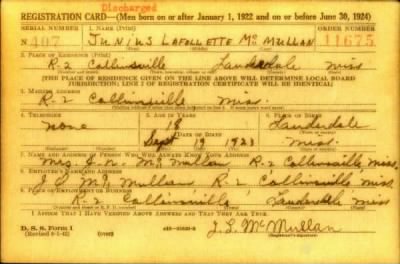 Discharged
REGISTRATION CARD—(Men born on or after January 1, 1922 and on or before June 30, 1924)
SERIAL NUMBER 1. NAME (Print) ORDER NUMBER
N 407 JUNIUS LAFOLLETTE McMULLAN 11675
2. PLACE OF RESIDENCE (Print)
R-2 Collinsville Lauderdale Miss
[THE PLACE OF RESIDENCE GIVEN ON THE LINE ABOVE WILL DETERMINE LOCAL BOARD
JURISDICTION; LINE 2 OF REGISTRATION CERTIFICATE WILL BE IDENTICAL]
3. MAILING ADDRESS
R-2 Collinsville Miss.
4. TELEPHONE 5. AGE IN YEARS 6. PLACE OF BIRTH
None 18 Lauderdale
DATE OF BIRTH
Sept 19 1923 Miss.
7. NAME AND ADDRESS OF PERSON WHO WILL ALWAYS KNOW YOUR ADDRESS
Mrs. McMullan R-2 Collinsville, Miss.
8. EMPLOYER'S NAME AND ADDRESS
McMullan R-2 Collinsville, Miss
9. PLACE OF EMPLOYMENT OR BUSINESS
R-2 Collinsville Lauderdale Miss
I AFFIRM THAT I HAVE VERIFIED ABOVE ANSWERS AND THAT THEY ARE TRUE.
D. S. S. Form 1
J. L. McMullan